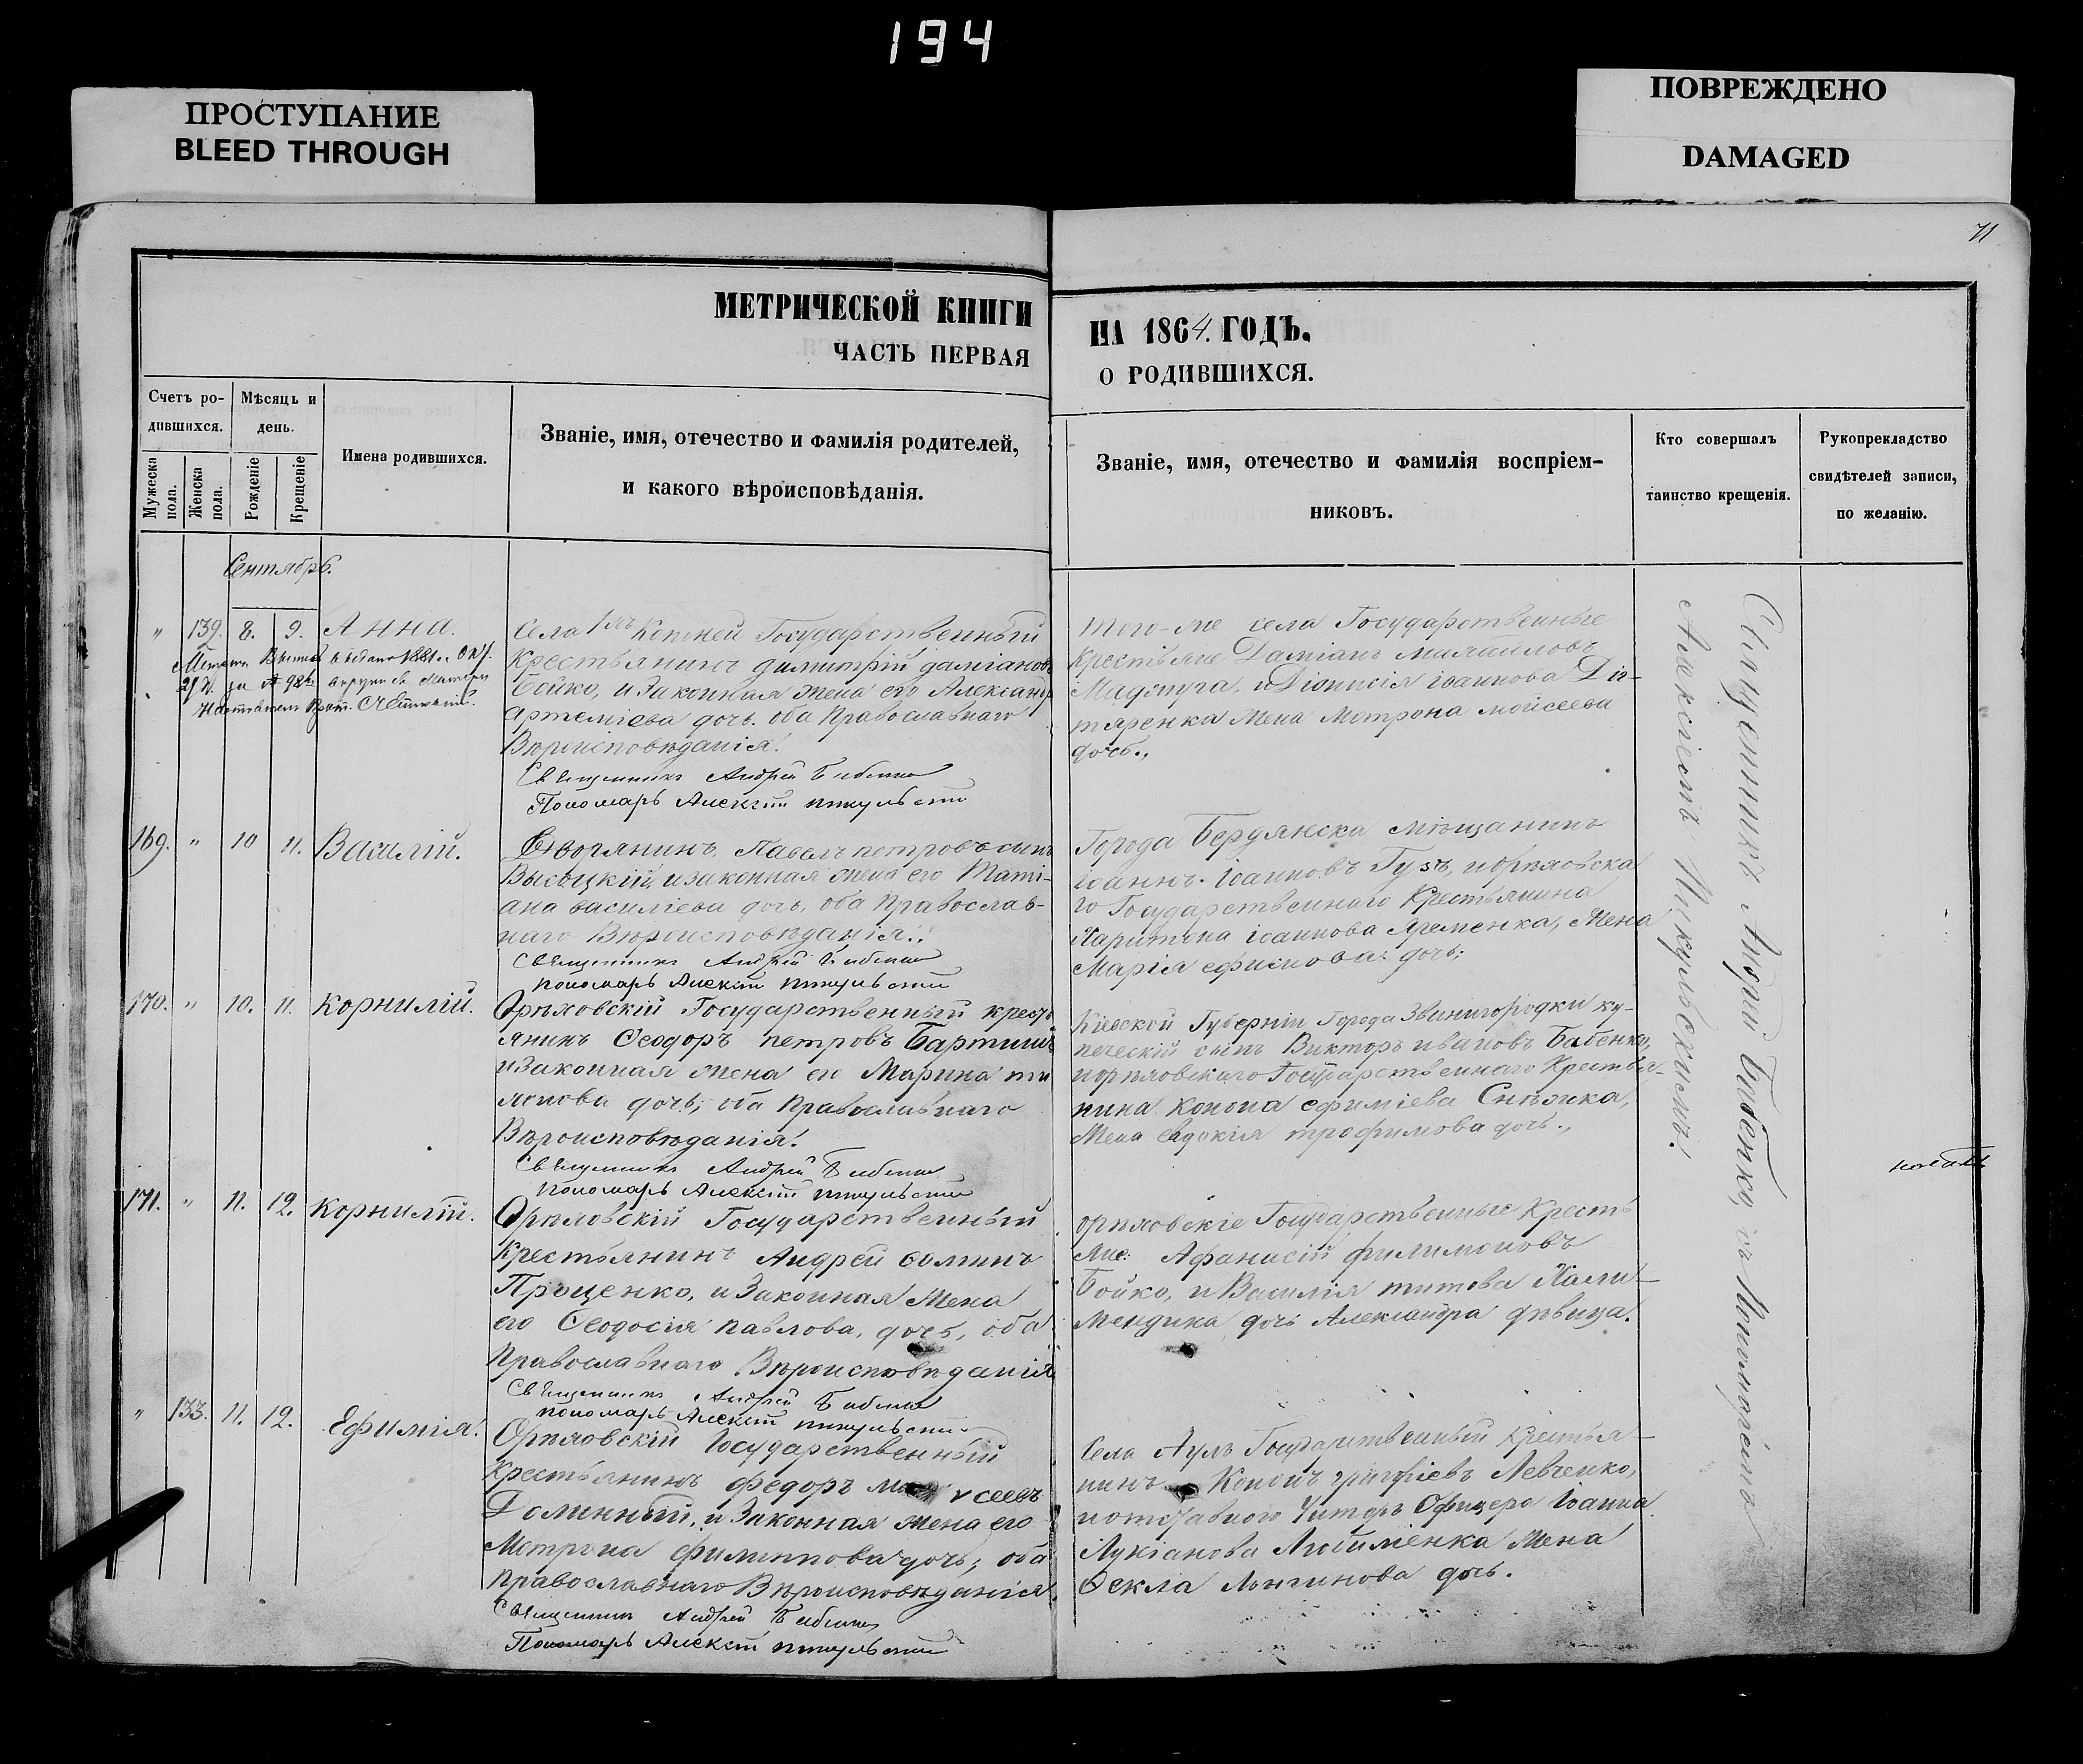 194
ПРОСТУПАНИЕ
BLEED THROUGH
ПОВРЕЖДЕНО
DAMAGED
71
МЕТРИЧЕСКОЙ КНИГИ
ЧАСТЬ ПЕРВАЯ
НА 1864. ГОДЪ.
О РОДИВШИХСЯ.
Счетъ ро-
дившихся.
Мужеска
пола.
Женска
пола.
Мѣсяцъ и
день.
Рожденіе
Крещеніе
Имена родившихся.
Званіе, имя, отечество и фамилія родителей,
и какого вѣроисповѣданія.
Званіе, имя, отечество и фамилія воспріем-
никовъ.
Кто совершалъ
таинство крещенія.
Рукоприкладство
свидѣтелей записи,
по желанію.
Сентябрь.
" 139. 8. 9. Анна.
Села Копоней Государственный
Крестьянинъ димитрій даміановъ
Бойко, и Законная жена его Александра
Артеміева дочь. оба Православнаго
Вѣроисповѣданія.
Священникъ Андрей Бибенко
Пономарь Алексій Пикульскій
того-же села Государственные
Крестьяне Даміанъ Михайловъ
и Діонисія іоаннова Дег-
тяренка жена Мотрона моисеева
дочь.,
169. " 10 11. Василій.
Дворянинъ, Павелъ петровъ сынъ
Высоцкій, и законная жена его Таті-
ана василіева дочь, оба Православ-
наго Вѣроисповѣданія.,
Священникъ Андрей Бибенко
пономарь Алексій Пикульскій
Города Бердянска мѣщанинъ
іоаннъ іоанновъ Гузъ, и орѣховска
го Государственнаго Крестьянина
Харитона іоаннова Яременка, жена
Марія ефимова дочь;
170. " 10. 11. Корнилій.
Орѣховскій Государственный крест
янинъ Феодоръ петровъ
и законная жена его Марина
дочь; оба Православнаго
Вѣроисповѣданія.
Священникъ Андрей Бибенко
пономарь Алексій Пикульскій
Кіевской Губерніи Города Звенигородки ку-
печескій сынъ Викторъ ивановъ Бабенко,
и орѣховскаго Государственнаго Крестья-
нина Конона ефиміева
жена евдокія трофимова дочь.,
171. " 11. 12. Корнилій.
Орѣховскій Государственный
Крестьянинъ Андрей фоминъ
Проценко, и Законная жена
его Феодосія павлова, дочь, оба
Православнаго Вѣроисповѣданія
Священникъ Андрей Бибенко
пономарь Алексій Пикульскій
орѣховскіе Государственные Кресть
яне: Афанасій филимоновъ
Бойко, и Василія титова
дочь Александра дѣвица.
" 133. 11. 12. Ефимія.
Орѣховскій Государственный
Крестьянинъ федоръ
и Законная жена его
Мотрона филиппова дочь; оба
православнаго Вѣроисповѣданія.
Священникъ Андрей Бибенко
Пономарь Алексій Пикульскій
Села Аулъ Государственный крестья-
нинъ Кононъ григоріевъ Левченко,
и отставного Унтеръ Офицера Іоанна
Лукіанова жена
Фекла Лонгинова дочь.
Священникъ Андрей Бибенко, съ Пономаремъ
Алексіемъ Пикульскимъ.